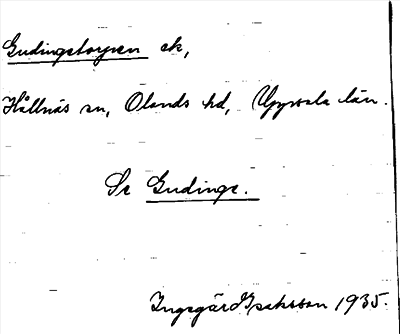 Gudingstorpen ek,
Hållnäs sn, Olands hd, Uppsala län.
Se Gudinge.
Ingegär Isaksson 1935.